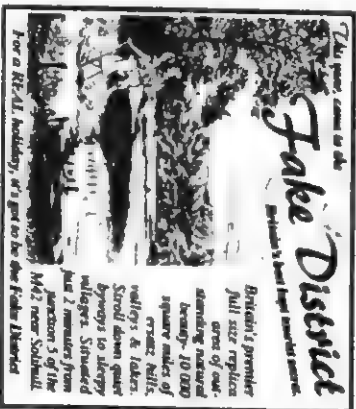 This year come to the
Fake District
Britain's best kept tourist secret.
Britain's premier
full size replica
area of out-
standing natural
beauty. 10,000
square miles of
exotic hills,
valleys & lakes.
Stroll down quiet
byways to sleepy
villages. Situated
just 2 minutes from
junction 5 of the
M42 near Solihull.
For a REAL holiday, it's got to be the Fake District